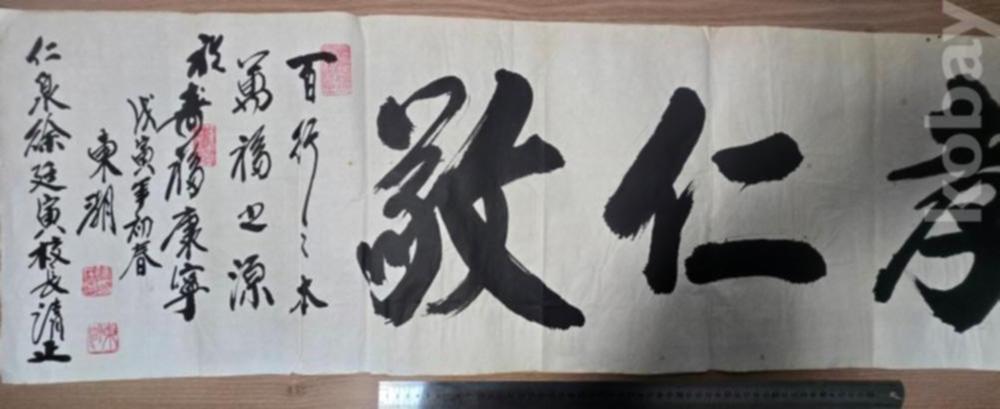 仁敬
百行之本
萬福之源
壽福康寧
戊寅年初春
東
仁泉徐廷寅校長清正
kobay